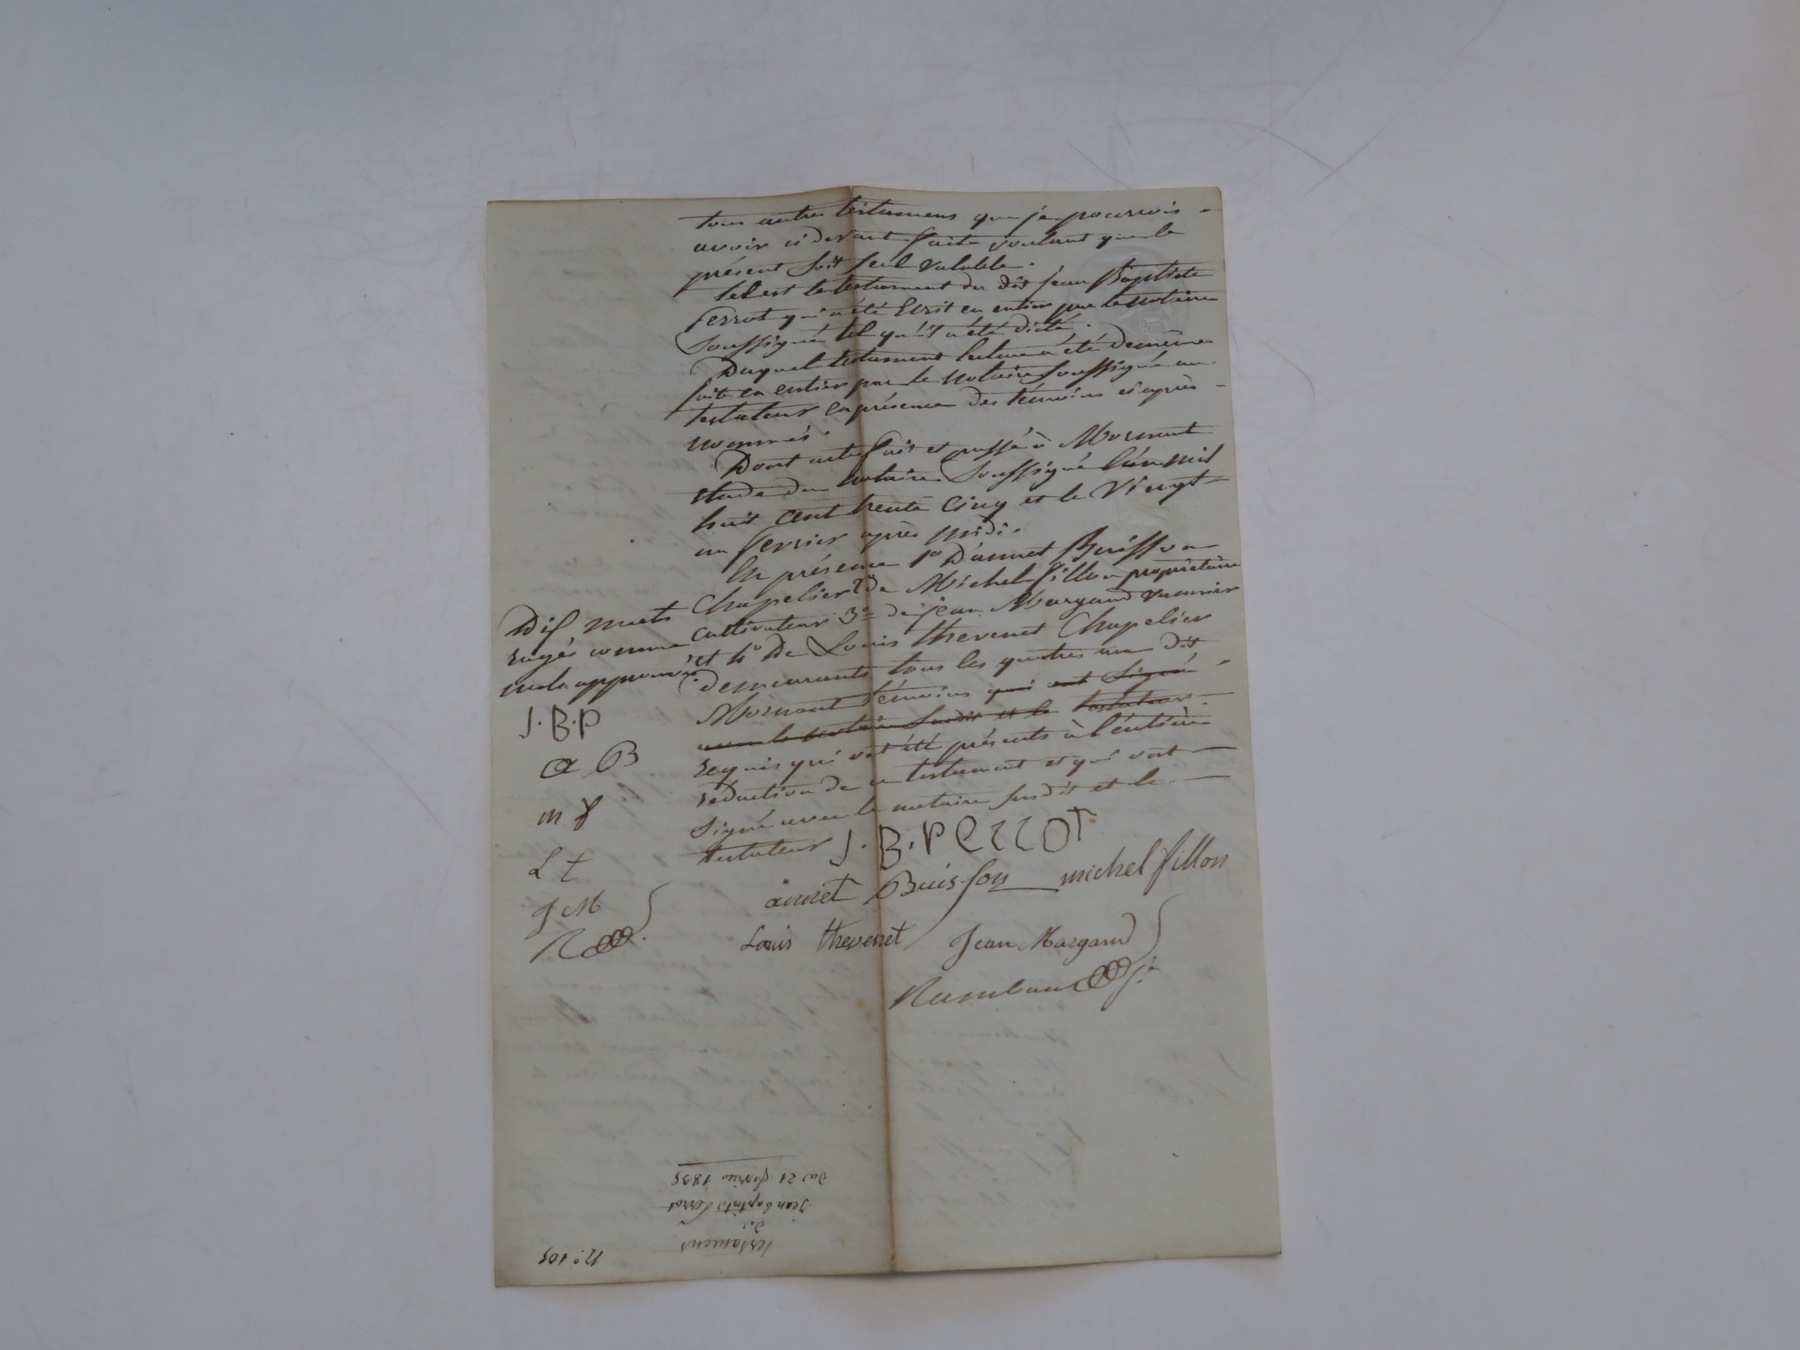 tous autres testamens que je pourrois
avoir ci devant faits voulant que le
présent soit seul valable.
tel est le testament du dit jean Baptiste
Perrot qui a été Ecrit en entier par le notaire
soussigné tel qu'il a été dicté.
Duquel testament lecture a été de même
faite en entier par le notaire soussigné au
testateur en présence des témoins ci après
nommés.
Dont acte fait et passé à Mornant
étude du notaire soussigné l'an mil
huit cent trente cinq et le vingt
un fevrier après midi.
En présence 1o D'annet Buisson
Chapelier 2o de Michel fillon propriétaire
cultivateur 3o de jean Margand
et 4o de Louis thevenet Chapelier
demeurants tous les quatres au dit
Mornant témoins qui ont signé
avec le notaire susdit et le testateur
requis qui ont été présents à l'entière
rédaction de ce testament et qui ont
signé avec le notaire susdit et le
testateur
Dix mots
rayés comme
nuls approuvés.
J.B.P
a B
m f
L t
J M
R
J.B.PERROT
annet Buisson michel fillon
Louis thevenet Jean Margand
Rambaud
No. 105
testament
de
Jean baptiste Perrot
du 21 fevrier 1835